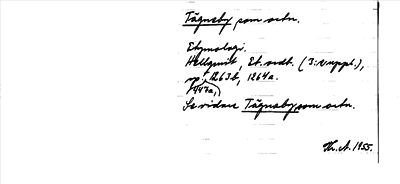 Tågneby som ortn.
Etymologi.
Hellquist, Et. ordb. (3:e uppl.),
sp. 1263b, 1264a.
Se vidare Tågnaby som ortn.
1955.